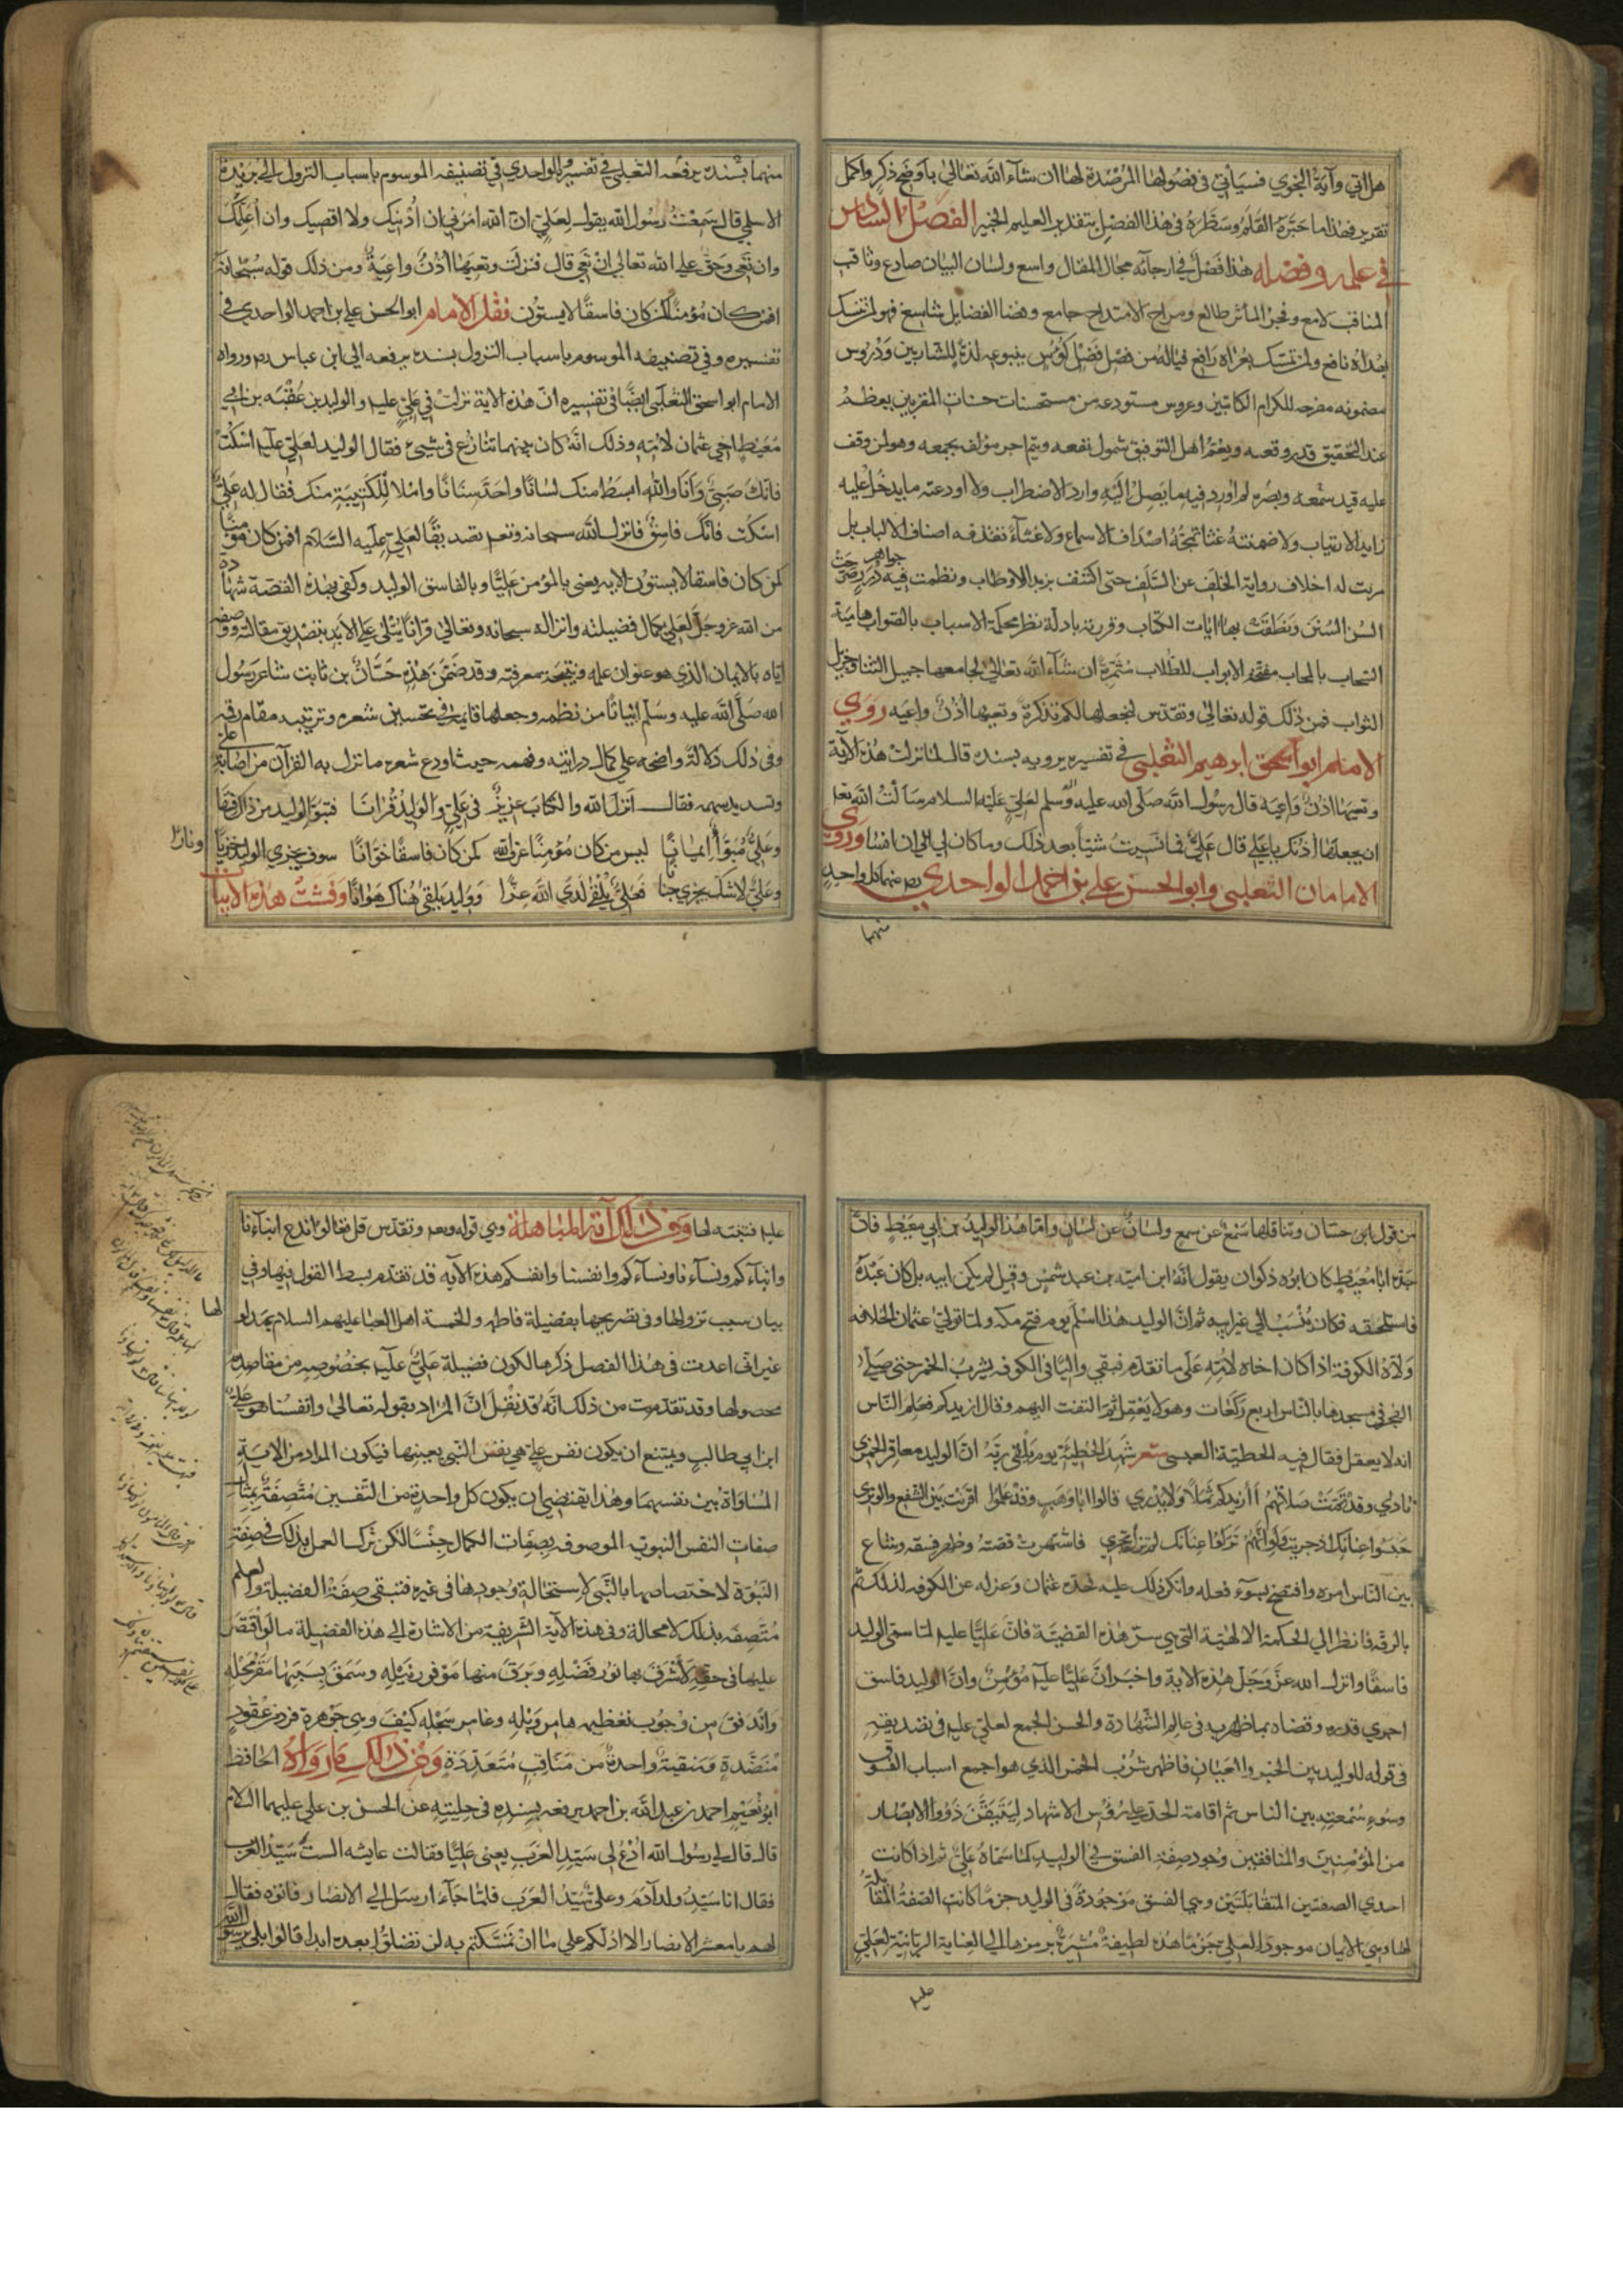 هل اتى وآية النجوى فسيأتي في فصولها المرصدة لها ان شآء الله تعالى باوضح ذكر واكمل
تقرير فهذا ما حبّره القلم وسطّره في هذا الفصل بتقدير العليم الخبير الفصل السادس
في علمه وفضله هذا فصل في ارجائه مجال المقال واسع ولسان البيان صادع وثاقب
المناقب لامع وفجر المآثر طالع ومراح الامتداح جامع وفضا الفضايل شاسع فهو لمن تمسك
بهداه نافع ولمن تمسّك بعراه رافع فياله من فصل فضل كؤس ينبوعه لذة للشاربين ودروس
مضمونه مفرحه للكرام الكاتبين وعروس مستودعه من مستحسنات حسنات المقربين يعظم
عند التحقيق قدر وقعه ويعمّ اهل التوفيق شمول نفعه ويتم اجر مؤلف بجمعه وهو لمن وقف
عليه قيد سمعه وبصره لم اورد فيه ما يصل اليه وارد الاضطراب ولا اودعته ما يدخل عليه
زايد الارتياب ولا ضمنته غثا تمجّه اصداف الاسماع ولا غثآء تقذفه اصناف الالباب بل
مريت له اخلاف رواية الخلف عن السّلف حتى اكتنف بزبد الاوطاب ونظمت فيه جواهر درر صرحت
السن السنن ونطقت بها ايات الكتاب وقررته بادلة نظر محكمة الاسباب بالصواب هامية
السّحاب بالمحاب مفتحة الابواب للطّلاب مثمرة ان شآء الله تعالى لجامعها جميل الثناء وجزيل
الثواب فمن ذلك قوله تعالى وتقدّس لنجعلها لكم تذكرة وتعيها اذن واعيه روى
الامام ابو اسحق ابرهيم الثعلبي في تفسيره يرويه بسنده قال لما نزلت هذه الآية
وتعيها اذن واعية قال رسول الله صلى الله عليه وآله وسلم لعلي عليه السلام سألت الله تعا
ان يجعلها اذنك يا علي قال علي فما نسيت شيئا بعد ذلك وما كان لي ان انسا وروى
الامامان الثعلبي وابو الحسن علي بن احمد الواحدي رضي عنهما كل واحد
منهما
منهما بسنده يرفعه الثعلبي في تفسيره والواحدي في تصنيفه الموسوم باسباب النزول الى بريدة
الاسلمي قال سمعت رسول الله يقول لعلي ان الله امرني ان اُدنيك ولا اقصيك وان اعلّمك
وان تعي وحق على الله تعالى ان تعي قال فنزلت وتعيها اذن واعية ومن ذلك قوله سبحانه
افمن كان مؤمنا كمن كان فاسقا لا يستوُن فنقل الامام ابو الحسن علي بن احمد الواحدي في
تفسيره وفي تصنيفه الموسوم باسباب النزول بسنده يرفعه الى ابن عباس رض ورواه
الامام ابو اسحق الثعلبي ايضا في تفسيره ان هذه الاية نزلت في علي عليه والوليد بن عُقبه بن ابي
معيط اخي عثمان لامّه وذلك انّه كان بينهما تنازع في شيء فقال الوليد لعلي عليه اسكت
فانك صبيّ وانا والله ابسط منك لسانا واحدّ سنانا واملا للكتيبة منك فقال له علي
اسكت فانّك فاسق فانزل الله سبحانه وتعا تصديقا لعلي عليه السّلام افمن كان مؤمنا
كمن كان فاسقا لا يستوُن الايه يعني بالمؤمن عليّا وبالفاسق الوليد وكفى بهذه القصة شهادة
من الله عز وجل لعلي بكمال فضيلته وانزاله سبحانه وتعالى قرانا يتلى على الابد بتصديق مقالته ووصفه
ايّاه بالايمان الذي هو عنوان علمه ونتيجة معرفته وقد ضمّن هذه حسّان بن ثابت شاعر رسول
الله صلى الله عليه وسلم ابياتا من نظمه وجعلها في تحسين شعره وترتيبه مقام رقيه
وفي ذلك دلالة واضحه على كمال درايته وفهمه حيث اودع شعره ما نزل به القرآن من اصابة علي
وتسديد سهمه فقال انزل الله والكتاب عزيز في علي والوليد قرانا فتبوّأ الوليد من ذاك فسقا
وعليّ مبوّأ ايمانا ليس من كان مؤمنا عرف الله كمن كان فاسقا خوّانا سوف يجزى الوليد خزيا ونارا
وعلي لا شك يجزى جنانا فعلي يلقى لدى الله عزّا ووليد يلقى هناك هوانا وفشت هذه الابيات
من قول ابن حسّان وتناقلها سمع عن سمع ولسان عن لسان وامّا هذا الوليد بن ابي معيط فانّ
جدّه ابا معيط كان ابوه ذكوان يقول انّه ابن اميّة بن عبد شمس وقيل لم يكن ابيه بل كان عبده
فاستلحقه فكان ينسب الى غير ابيه ثم انّ الوليد هذا اسلم يوم فتح مكه ولما تولّى عثمان الخلافه
ولاّه الكوفة اذ كان اخاه لامّه على ما تقدّم فبقي واليا في الكوفه يشرب الخمر حتى صلّى
الفجر في مسجدها بالناس اربع ركعات وهو لا يعقل ثم التفت اليهم وقال ازيدكم فعلم النّاس
انه لا يعقل فقال فيه الحطيّة العبسى شعر شهد الحطيّة يوم يلقى ربّه انّ الوليد معاقر الخمر
نادى وقد تمّت صلاتهم أأزيدكم ثملا ولا يدري قالوا ابا وهب ولو فعلوا لقرنت بين الشفع والوتر
حبسوا عنانك اذ جريت ولو انهم تركوا عنانك لم تزل تجري فاشتهرت قصّته وظهر فسقه وشاع
بين النّاس امره وافتضح بسوء فعله وانكر ذلك عليه فحدّه عثمان وعزله عن الكوفه لذلك ثم
بالرقّه فانظر الى الحكمة الالهيّة التي هي سرّ هذه القضيّة فانّ عليّا عليه لما سمّى الوليد
فاسقا وانزل الله عزّ وجلّ هذه الاية واخبر انّ عليّا عليه مؤمن وانّ الوليد فاسق
اجرى قدره وقضاه بما ظهر به في عالم الشهادة والحس الجمع لعلي عليه في تصديقه
في قوله للوليد بين الخبر والعيان فاظهر شرب الخمر الذي هو اجمع اسباب الفسوق
وسوء سمعته بين الناس ثم اقامة الحد عليه على رؤس الاشهاد ليتيقّن ذوُوا الابصار
من المؤمنين والمنافقين وجود صفة الفسق في الوليد كما سمّاه علي ثم اذا كانت
احدى الصفتين المتقابلتين وهي الفسق موجودة في الوليد جزما كانت الصفة المقابلة
لها وهي الايمان موجودا لعلي جزما هذه لطيفة مشيرة برمزها الى العناية الربّانيّة لعلي
عليه
عليه فتنبّه لها ومن ذلك آية المباهلة وهي قوله وتعا وتقدّس قل تعالوا ندع ابناءنا
وابناءكم ونساءنا ونساءكم وانفسنا وانفسكم هذه الآيه قد تقدّم بسط القول فيها وفي
بيان سبب نزولها وفي تصريحها بفضيلة فاطمه والخمسة اهل العبا عليهم السلام
غير انّي اعدت في هذا الفصل ذكرها لكون فضيلة علي عليه بخصُوصه من مقاصد لها
محصولها وقد تقدّمت من ذلك انّه قد نقل انّ المراد بقوله تعالى وانفسنا هو علي
ابن ابي طالب ويمتنع ان يكون نفس علي هي نفس النّبي بعينها فيكون المراد من الاية
المساواة بين نفسيهما وهذا يقتضي ان يكون كل واحدة من النّفسين متّصفة بمثل
صفات النفس النبويه الموصوفه بصفات الكمال جنسا لكن ترك العمل بذلك في صفة
النّبوّة لاختصاصها بالنّبي لاستحالة وجودها في غيره فتبقى صفة الفضيلة والعلم
متّصفه بذلك لا محالة وفي هذه الآية الشّريفة من الاشارة الى هذه الفضيلة ما لو اقتصر
عليها في حقه لأشرق بها نور فضله وبرق منها موفور نبله وسمق بسببها مقرّ محلّه
واندفق من وجوب تعظيمه هامر وبله وغامر سجله كيف وهي جوهرة فرد من عقود
منضّدة ومنقبة واحدة من مناقب متعدّدة ومن ذلك ما رواه الحافظ
ابو نعيم احمد بن عبد الله بن احمد يرفعه بسنده في حليته عن الحسن بن علي عليهما السلام
قال قال لي رسول الله ادعُ لي سيّد العرب يعني عليّا فقالت عايشه الست سيّد العرب
فقال انا سيّد ولد آدم وعلي سيّد العرب فلمّا جآء ارسل الى الانصار فاتوه فقال
لهم يا معشر الانصار الا ادلّكم على ما ان تمسّكتم به لن تضلّوا بعده ابدا قالوا بلى يا رسول الله